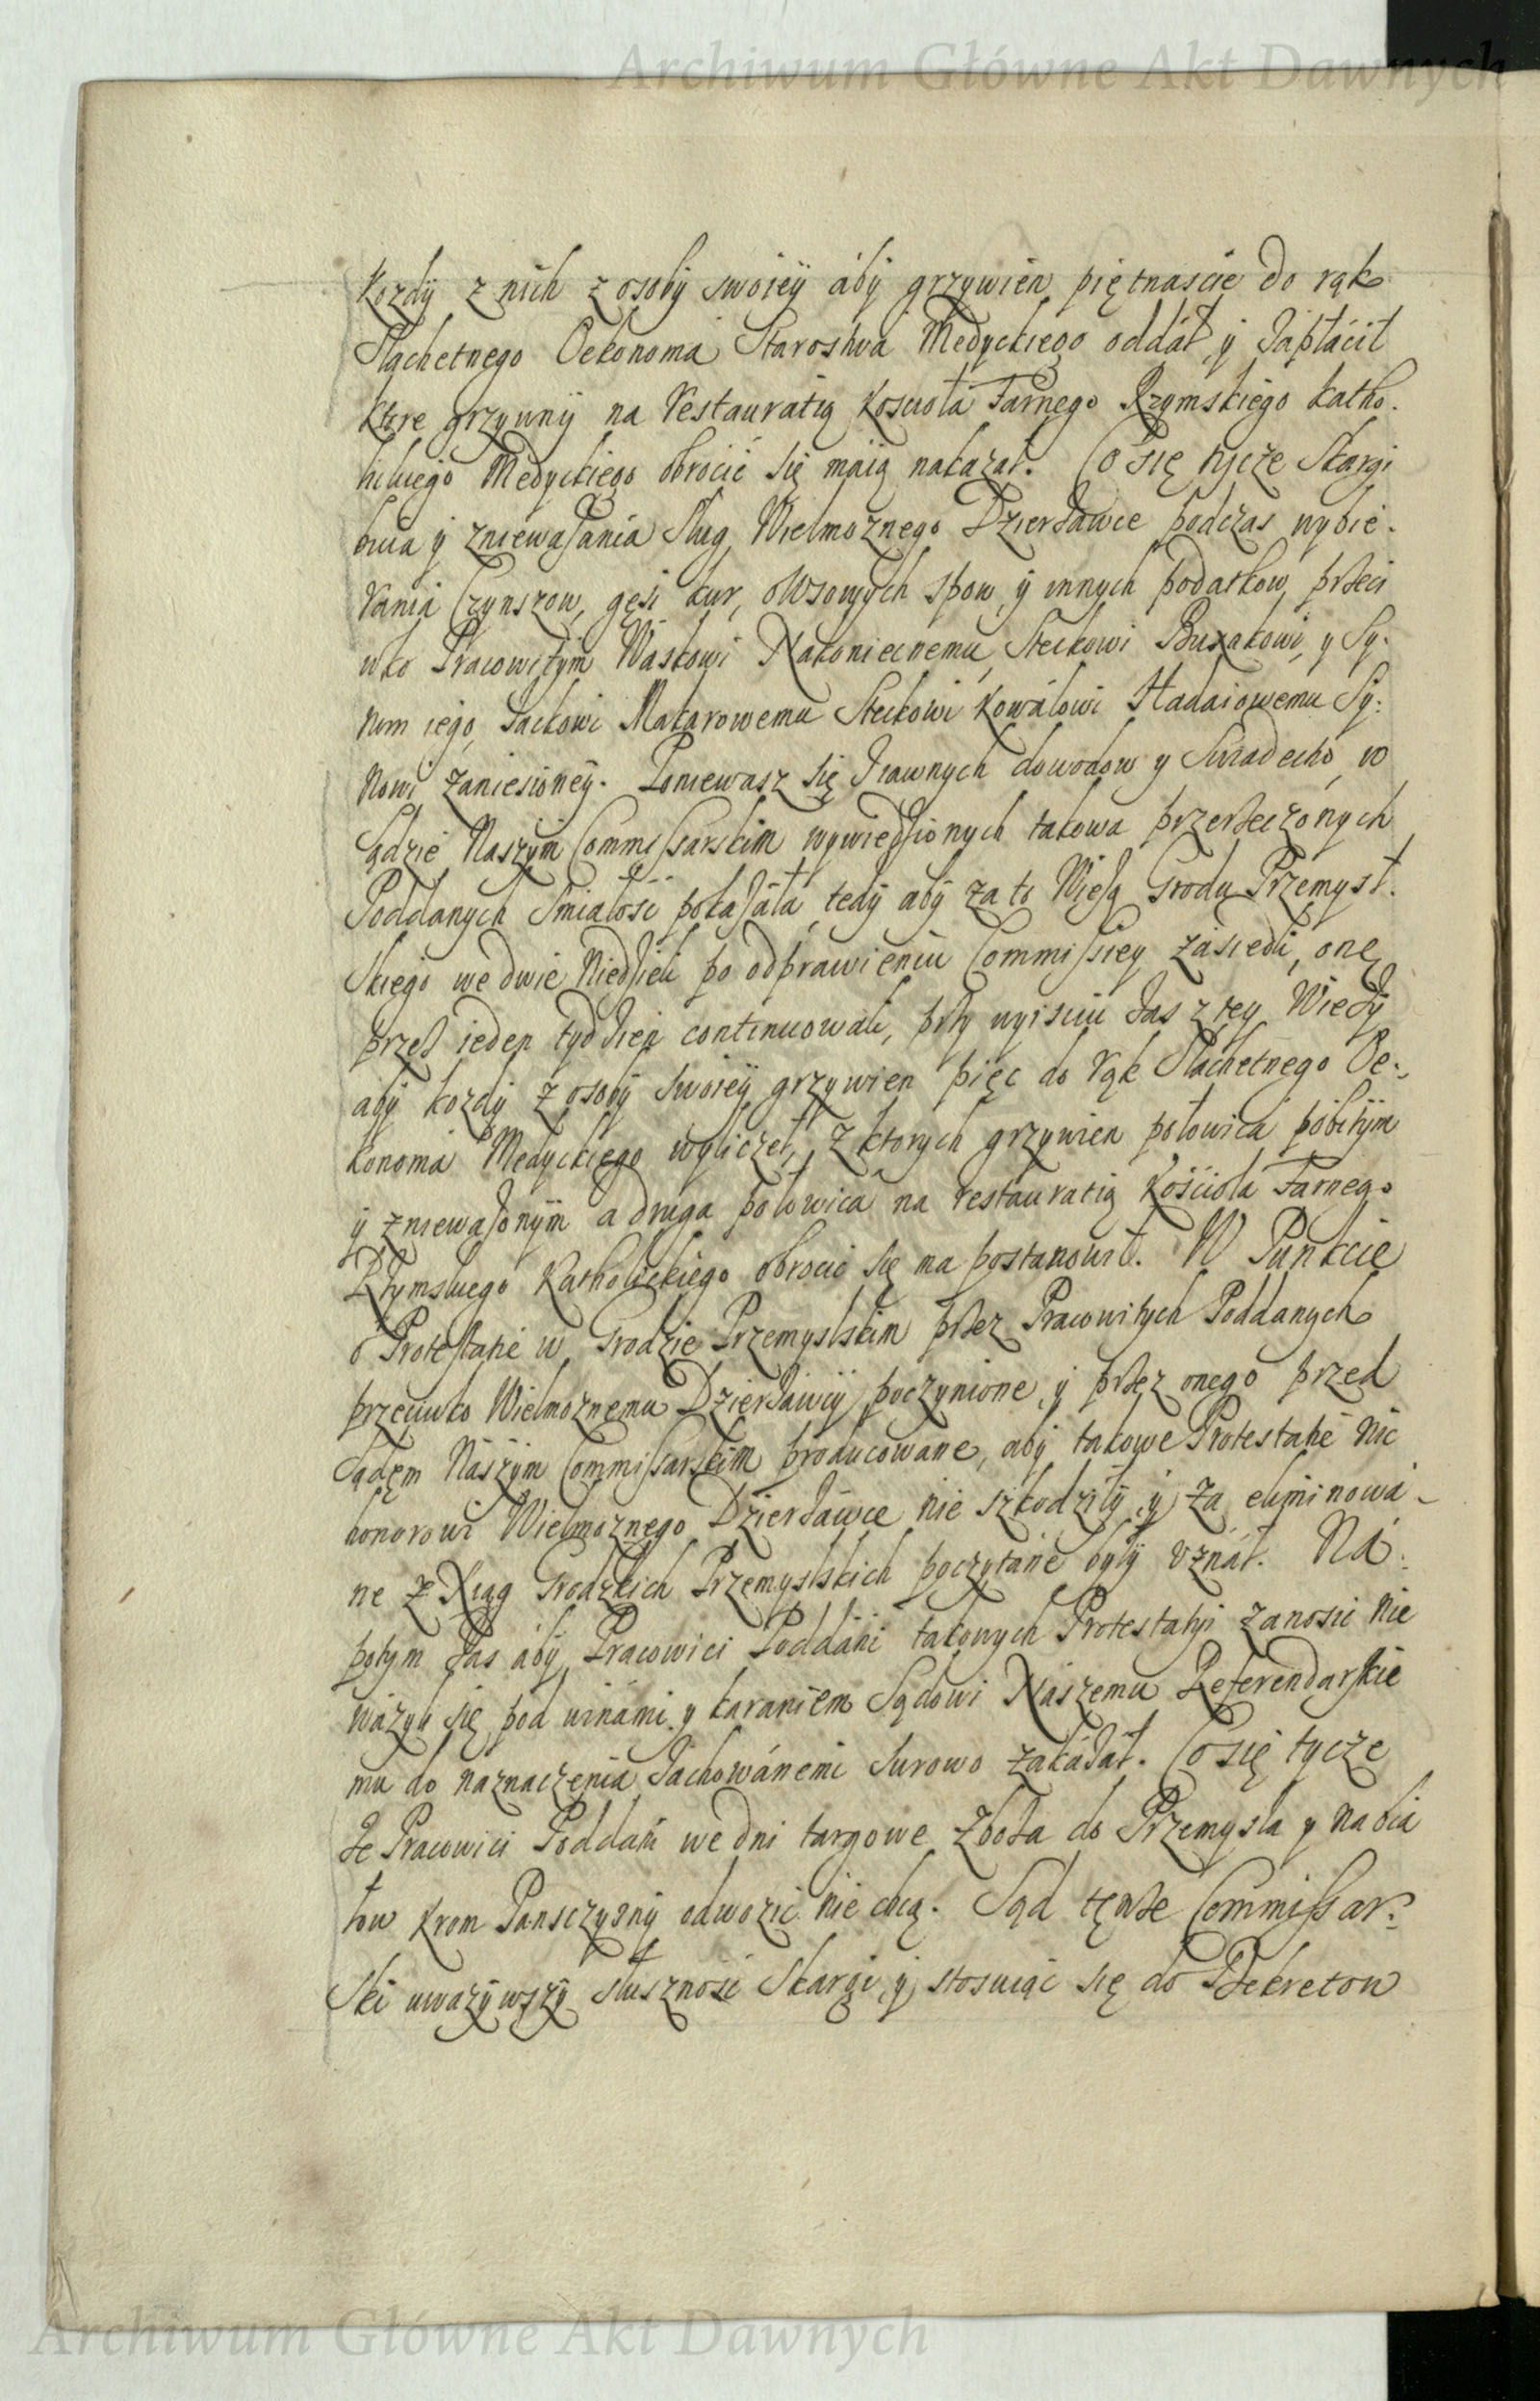 Archiwum Główne Akt Dawnych
Kozdy z nich z osoby swoiey áby grzywien piętnascie do rąk
Slachetnego Oekonoma Starostwa Medyckiego oddáł y záptáćił
ktore grzywny na restauratią Kosciołá Farnego Rzymskiego Katho.
lickiego Medyckiego obrocić się máią nakazał. Co się tycze Skargi
bicia y zniewazania Sług Wielmoznego Dzierzawce podczas wybie.
rania Czynszow, gęsi kur, owsowych spow, y innych podatkow, przeci
wko Pracowitym Waskowi Nakoniecnemu, Steckowi Buxakowi, y Sy.
nom iego, Jackowi Makarowemu Steckowi Kowálowi Hadaiowemu Sy:
nowi zaniesioney. Poniewasz się z iawnych dowodow y Swiadectw, w
Sądzie Naszym Commissarskim wywiedzionych takowa przerzeczonych
Poddanych Smiałość pokazáła, tedy aby za to Wiezą Grodu Przemysł.
skiego we dwie Niedzieli po odprawieniu Commissiey zásiedli, onę
przez ieden tydzien continuowali, przy wyisciu zas z tey Wiezy
aby kozdy z osoby swoiey grzywien pięc do rąk Slachetnego Oe.
konoma Medyckiego wyliczeł, z ktorych grzywien połowica pobitym
y zniewazonym a druga połowica na restauratią Kościoła Farnego
Rzymskiego Katholickiego obrocic się ma postanowił. W Punkcie
o Protestatie w Grodzie Przemyslskim przez Pracowitych Poddanych
przeciwko Wielmoznemu Dzierzawcy poczynione, y przez onego przed
Sądem Naszym Commissarskim producowane, aby takowe Protestatie nic
honorowi Wielmoznego Dzierzawce nie szkodziły, y za eliminowá-
ne z Xiąg Grodzkich Przemyslskich poczytáne były uznáł. Ná.
potym zas áby Pracowici Poddáni takowych Protestatyi zanosic nie
wázyli się pod winámi y karaniem Sądowi Naszemu Referendarskie
mu do naznaczenia záchowánemi surowo zakázał. Co się tycze
ze Pracowici Poddáni we dni targowe Zboza do Przemysla y nabia
łow krom Panszczyzny odwozic nie chcą. Sąd tęnze Commissar:
ski uwazywszy słusznosc Skargi, y stosuiąc się do Dekretow
Archiwum Główne Akt Dawnych